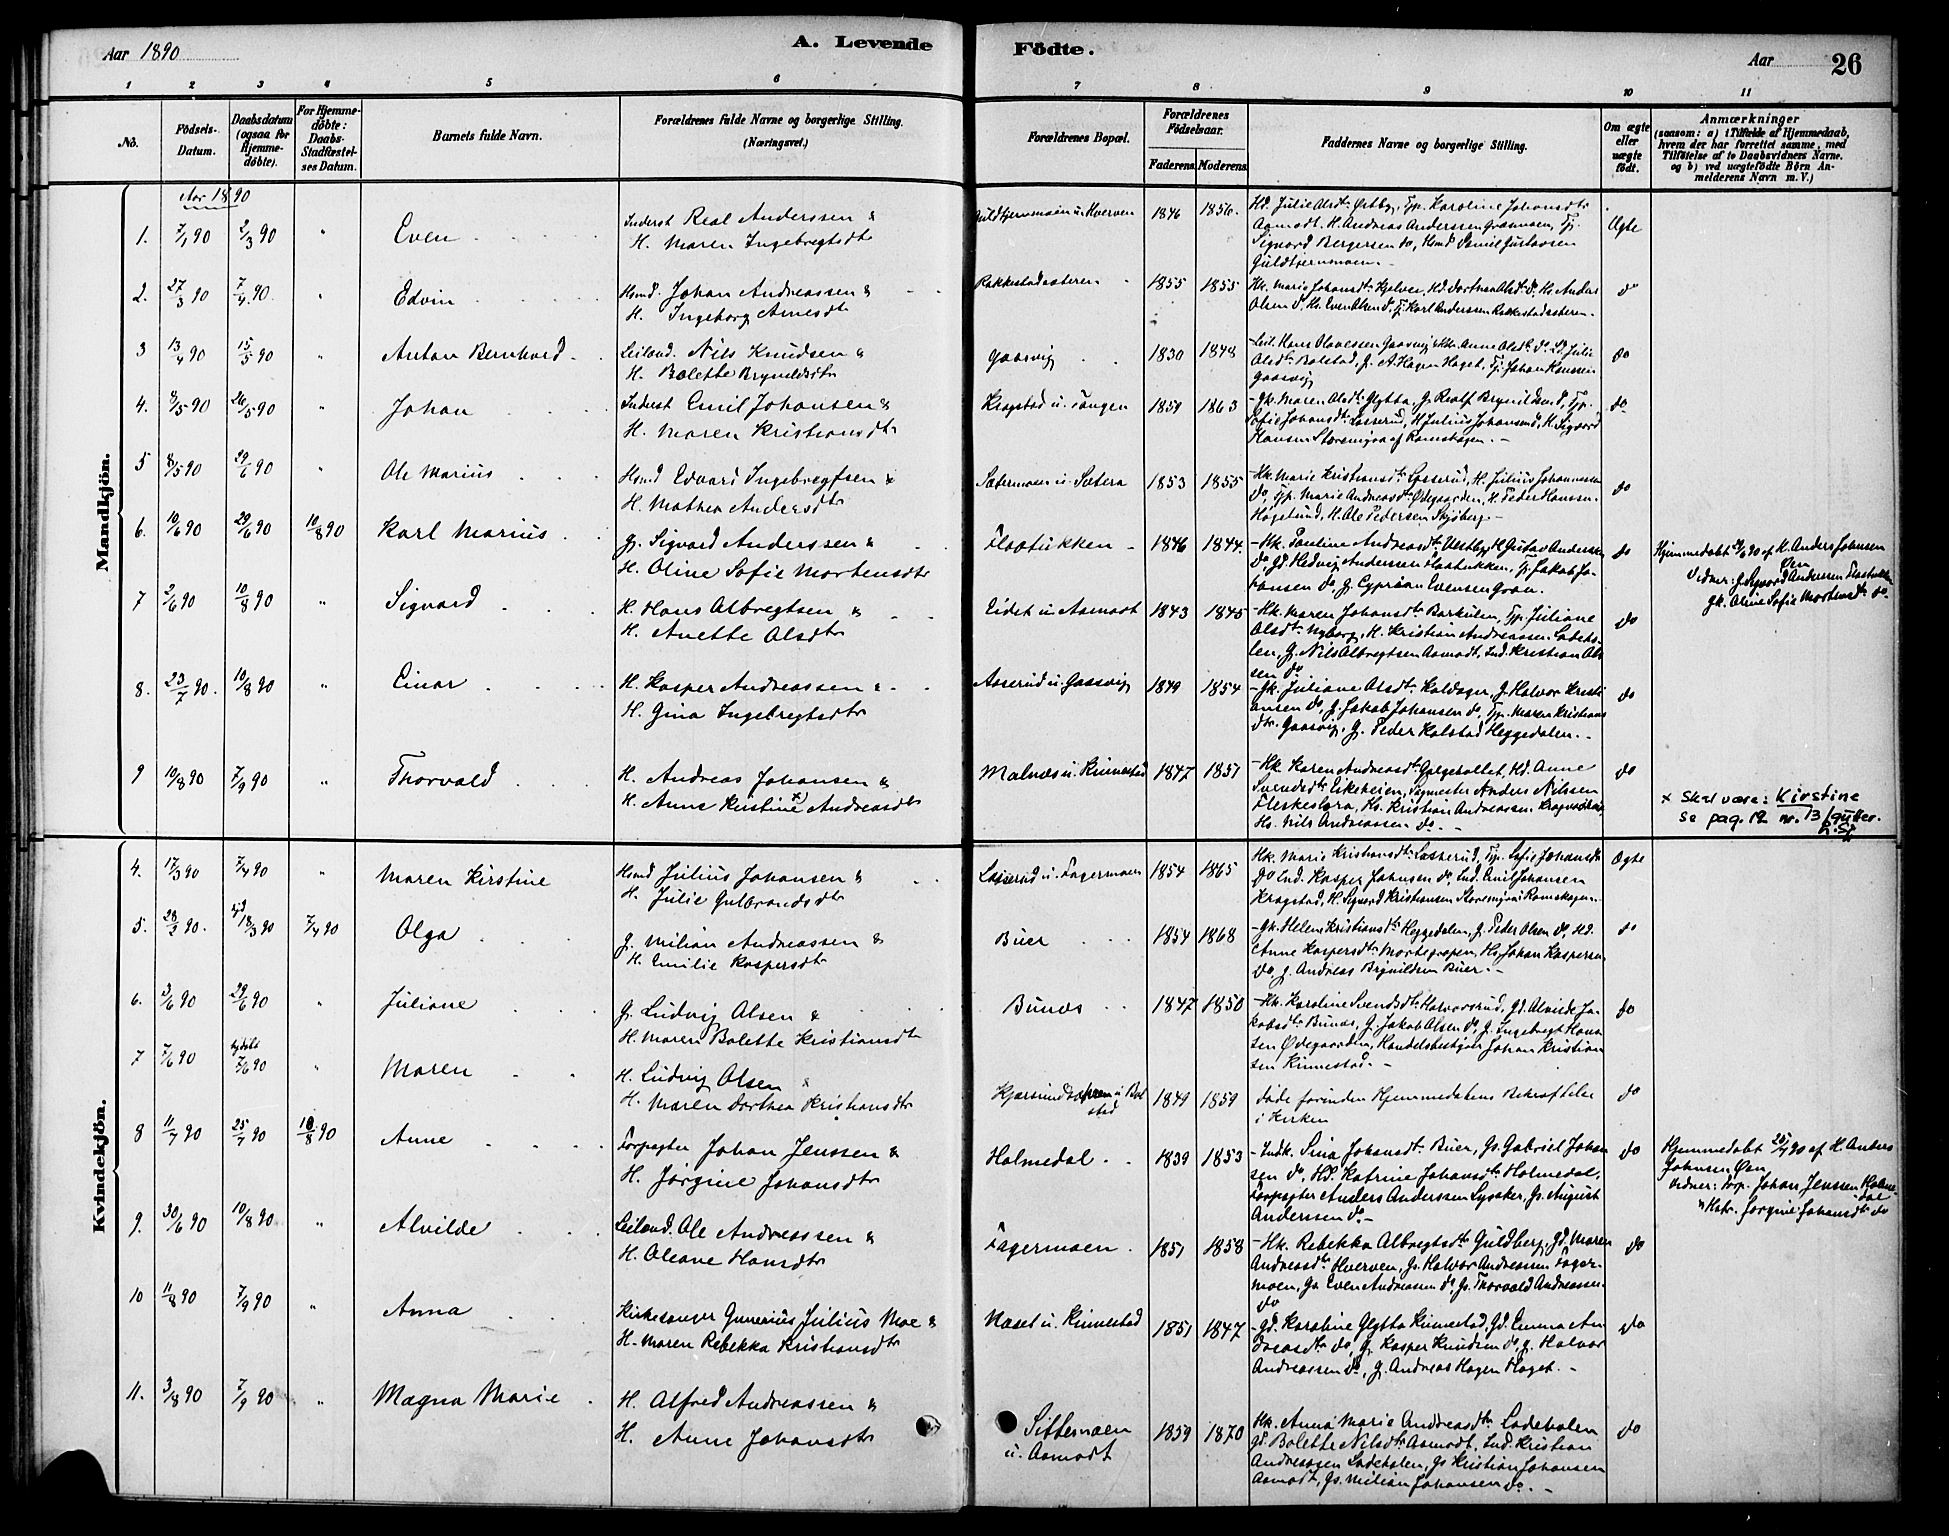 Aar 1890
A. Levende
Födte.
Aar
26
1 2 3 4 5 6 7 8 9 10 11
No.
Födsels-
Datum.
Daabsdatum
(ogsaa for
Hjemme-
döbte).
For Hjemme-
döbte:
Daabs-
Stadfæstel-
ses Datum.
Barnets fulde Navn.
Forældrenes fulde Navne og borgerlige Stilling.
(Næringsvei.)
Forældrenes Bopæl.
Forældrenes
Födselsaar.
Faderens
Moderens
Faddernes Navne og borgerlige Stilling.
Om ægte
eller
uægte
födt.
Anmærkninger
(saasom: a) i Tilfælde af Hjemmedaab,
hvem der har forrettet samme, med
Tilföielse af to Daabsvidners Navne.
og b) ved uægtefödte Börn An-
melderens Navn m. V.)
Mandkjön.
Aar 1890
1. 7/1 90 2/3 90 " Even
Inderst Real Anderssen &
H. Maren Ingebregtsdtr
Guldtjernmoen u. Kverven 1846 1856.
Hd. Julie Olsdtr Østby, Tjp. Karoline Johansdtr
Aamodt, H. Andreas Anderssen Graamosen, Tj.
Sigvard Bergersen do, Hsmd Daniel Gustavsen
Guldtjernmoen.
Ægte
2. 27/3 90 7/4 90 " Edvin
Hsmd. Johan Andreassen &
H. Ingeborg Arnesdtr
Rakkestadasteren 1855 1855
Hk. Marie Johansdtr Kjelven, Hd. Dorthea Olsdtr do, Hs. Anders
Olsen do, Hs. Even Olsen do, Tj. Karl Anderssen Rakkestadasteren.
do
3 13/4 90 15/5 90 " Anton Bernhard
Leiland. Nils Knudsen &
H. Bolette Brynildsdtr
Gaasvig 1830 1848
Leil. Hans Olavessen Gaasvig, Hk. Anne Olsdtr do, Ld. Julie
Olsdtr Bolstad, G. A. Hagen Haget, Tj. Johan Hanssen
Gaasvig
do
4. 8/5 90 26/5 90 " Johan
Inderst Emil Johansen &
H. Maren Kristiansdtr
Kragstad u. Tangen 1859 1863
Gk. Maren Olsdtr Glytta, G. Realf Brynildsen do, Tjp.
Sofie Johansdtr Lasserud, H. Julius Johansen do, H. Sigvard
Hansen Storemyra af Rømskogen.
do
5 8/5 90 29/6 90 " Ole Marius
Hsmd Edvard Ingebregtsen &
H. Mathea Andersdtr
Sætermoen u. Sætera 1853 1855
Hk. Marie Kristiansdtr Lasserud, H. Julius Johannesen
do, Tjp. Marie Andreasdtr Ødegaarden, H. Peder Hansen
Høgelund, H. Ole Pedersen Skjøberg
do
6. 10/6 90 29/6 90 10/8 90 Karl Marius
G. Sigvard Anderssen &
H. Oline Sofie Mortensdtr
Flaatukken 1846 1844.
Hk. Pauline Andreasdtr Vestby, H. Gustav Anderssen
do, Gd. Hedvig Anderssen Flaatukken, Tj. Jakob Jo-
hansen do, G. Cyprian Evensen Graa.
do
Hjemmedøbt 29/6 90 af K. Anders Johnsen
Øen
Vidner: G. Sigvard Anderssen Flaatukken
Gk. Oline Sofie Mortensdtr do.
7 2/6 90 10/8 90 " Sigvard
H. Hans Albregtsen &
H. Anette Olsdtr
Eidet u. Aamodt 1843 1845
Hk. Maren Johansdtr Barkulen, Tjp. Juliane
Olsdtr Nyborg, H. Kristian Andreassen Ladeho-
len, G. Nils Albregtsen Aamodt, Ind. Kristian Ols
sen do
do
8. 23/7 90. 10/8 90 " Einar
H. Kasper Andreassen &
H. Gina Ingebregtsdtr
Aaserud u. Gaasvig 1849 1854
Gk. Juliane Olsdtr Kaldager, G. Halvor Kristi
ansen do, G. Jakob Johansen do, Tjp. Maren Kristians
dtr. Gaasvig, G. Peder Kolstad Heggedalen.
do
9 10/8 90 7/9 90 " Thorvald
H. Andreas Johansen &
H. Anne Kristine x) Andreasdtr
Malnæs u. Kinnestad 1847 1851
Hk. Karen Andreasdtr Galgehollet, Hd. Anne
Svendsdtr Eikeheien, Sagmester Anders Nilssen
Fleskestøra, Hs. Kristian Andreassen
Hs. Nils Andreassen do.
do
x Skal være: Kirstine
se pag. 12 nr. 13 /gutter.
Kvindekjön.
4. 17/3 90 7/4 90 " Maren Kirstine
Hsmd Julius Johansen &
H. Julie Gulbrandsdtr
Lasserud u. Fagermoen 1854 1865
Hk. Marie Kristiansdtr Lasserud, Tjp. Sofie Johansdtr
do Ind. Kasper Johnsen do, Ind. Emil Johansen
Kragstad, H. Sigvard Kristiansen Storemyra i Rømskogen.
Ægte
5. 28/2 90. 18/3 90 7/4 90 Olga
G. Milian Andreassen &
H. Emilie Kaspersdtr
Buer 1854 1868
Gk. Helene Kristiansdtr Heggedalen, G. Peder Olsen do, Hd.
Anne Kaspersdtr Mortegropen, Hs. Johan Kaspersen
do, G. Andreas Brynildsen Buer.
do
6. 3/6 90 29/6 90 " Juliane
G. Ludvig Olsen &
H. Maren Bolette Kristiansdtr
Bunæs 1847 1850
Hk. Karoline Svendsdtr Halvorsrud, Gd. Alvilde Ja-
kobsdtr Bunæs, G. Jakob Olsen do, G. Ingebregt Hans
sen Ødegaarden, Handelsbestyrer Johan Kristian
sen Kinnestad.
do
7 7/6 90 7/6 90 " Maren
H. Ludvig Olsen &
H. Maren Dorthea Kristiansdtr
1849 1859
døde forinden Hjemmedabens Bekræftelse
i Kirken
do
8 11/7 90 25/7 90 10/8 90 Anne
Forpagter Johan Jenssen &
H. Jørgine Johansdtr
Holmedal 1839 1853
Indk. Sina Johansdtr Buer, Gs. Gabriel Johan
sen do, Hd. Katrine Johansdtr Holmedal,
Forpagter Anders Anderssen Lysaker, Gs. August
Anderssen do.
do
Hjemmedøbt 25/7 90 af K. Anders
Johnsen Øen
Vidner: Forp. Johan Jenssen Holme-
dal
" Hstr. Jørgine Johansdtr do
9. 30/6 90 10/8 90 " Alvilde
Leiland. Ole Andreassen &
H. Oleane Hansdtr
Fagermoen 1851 1858
Hk. Rebekka Albregtsdtr Guldberg, Gd. Maren
Andreasdtr Kverven, Gs. Halvor Andreassen Fager-
moen, Gs. Even Andreassen do, Gs. Thorvald Andreassen
do
do
10 11/8 90 7/9 90 " Anna
Kirkesanger Gunerius Julius Moe &
H. Maren Rebekka Kristiansdtr
Næset u. Kinnestad 1851 1847
Gd. Karoline Glytta Kinnestad, Gd. Emma An
dreasdtr do, G. Kasper Knudsen do, G. Halvor
Andreassen do, G. Andreas Hagen Haget.
do
11. 3/8 90 7/9 90 " Magna Marie
H. Alfred Andreassen &
H. Anne Johansdtr
Sittemoen
u. Aamodt 1859 1870
Hk. Anna Marie Andreasdtr Ladeholen
Gd. Bolette Nilsdtr Aamodt, Ind. Kristian
Andreassen Ladeholen, Gs Kristian Johansen
Aamodt, Gs. Milian Johansen do.
do